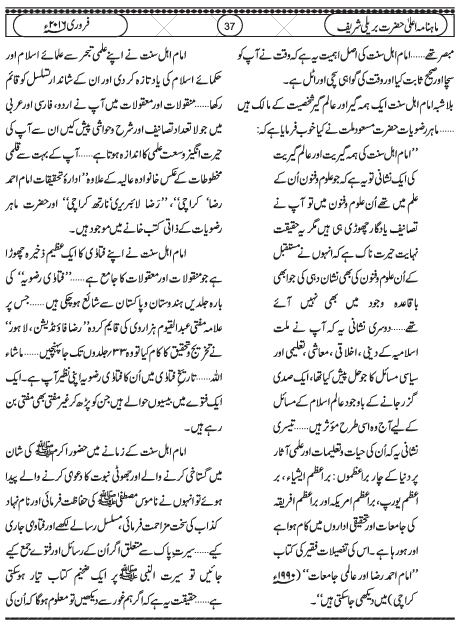 ماہنامہ اعلیٰ حضرت بریلی شریف
37
فروری ۲۰۱۶ء
مبصر تھے……امام اہل سنت کی اصل اہمیت یہ ہے کہ وقت نے آپ کو
سچا اور صحیح ثابت کیا اور وقت کی گواہی سچی اور اٹل ہے۔
بلاشبہ امام اہل سنت ایک ہمہ گیر اور عالم گیر شخصیت کے مالک ہیں
……ماہر رضویات حضرت مسعود ملت نے کیا خوب فرمایا ہے کہ:
"امام اہل سنت کی ہمہ گیریت اور عالم گیریت
کی ایک نشانی تو یہ ہے کہ جو علوم وفنون اُن کے
علم میں تھے اُن علوم وفنون میں تو آپ نے
تصانیف یادگار چھوڑی ہی ہیں مگر یہ حقیقت
نہایت حیرت ناک ہے کہ انہوں نے مستقبل
کے اُن علوم وفنون کی بھی نشان دہی کی جو ابھی
باقاعدہ وجود میں بھی نہیں آئے
تھے……دوسری نشانی یہ کہ آپ نے ملت
اسلامیہ کے دینی، اخلاقی، معاشی، تعلیمی اور
سیاسی مسائل کا جو حل پیش کیا تھا، ایک صدی
گزر جانے کے باوجود عالم اسلام کے مسائل
کے لیے آج وہ اسی طرح مؤثر ہیں……تیسری
نشانی یہ کہ اُن کی حیات وتعلیمات اور علمی آثار
پر دنیا کے چار براعظموں: براعظم ایشیاء، بر
اعظم یورپ، براعظم امریکہ اور براعظم افریقہ
کی جامعات اور تحقیقی اداروں میں کام ہوا ہے
اور ہو رہا ہے۔ اس کی تفصیلات فقیر کی کتاب
"امام احمد رضا اور عالمی جامعات" (۱۹۹۰ء
کراچی) میں دیکھی جاسکتی ہیں"۔
امام اہل سنت نے اپنے علمی تبحر سے علمائے اسلام اور
حکمائے اسلام کی یاد تازہ کردی اور ان کے شاندار تسلسل کو قائم
رکھا……منقولات اور معقولات میں آپ نے اردو، فارسی اور عربی
میں جو لاتعداد تصانیف اور شرح وحواشی پیش کیں ان سے آپ کی
حیرت انگیز وسعت علمی کا اندازہ ہوتا ہے……آپ کے بہت سے قلمی
مخطوطات کے عکس خانوادہ عالیہ کے علاوہ "ادارۂ تحقیقات امام احمد
رضا، کراچی"، "رضا لائبریری نارتھ کراچی" اور حضرت ماہر
رضویات کے ذاتی کتب خانے میں موجود ہیں۔
امام اہل سنت نے اپنے فتاوٰی کا ایک عظیم ذخیرہ چھوڑا
ہے جو منقولات اور معقولات کا جامع ہے……"فتاوٰی رضویہ" کی
بارہ جلدیں ہندوستان و پاکستان سے شائع ہوچکی ہیں……جس پر
علامہ مفتی عبدالقیوم ہزاروی کی قائم کردہ "رضا فاؤنڈیشن، لاہور"
نے تخریج وتحقیق کا کام کیا تو وہ ۳۳؍جلدوں تک جا پہنچیں……ماشاء
اللہ……تاریخ فتاوٰی میں اُن کا فتاوٰی رضویہ اپنی نظیر آپ ہے۔ ایک
ایک فتوے میں بیسیوں حوالے ہیں جن کو پڑھ کر غیر مفتی بھی مفتی بن
رہے ہیں۔
امام اہل سنت کے زمانے میں حضور اکرم ﷺ کی شان
میں گستاخی کرنے والے اور جھوٹی نبوت کا دعوٰی کرنے والے پیدا
ہوئے تو انہوں نے ناموس مصطفٰی ﷺ کی حفاظت فرمائی اور نام نہاد
کذاب کی سخت مزاحمت فرمائی، مسلسل رسالے لکھے اور فتاوٰی جاری
کیے……سیرت پاک سے متعلق اگر اُن کے رسائل اور فتوے جمع کیے
جائیں تو سیرت النبی ﷺ پر ایک ضخیم کتاب تیار ہوسکتی
ہے……حقیقت یہ ہے کہ اگر ہم غور سے دیکھیں تو معلوم ہوگا کہ اُن کی